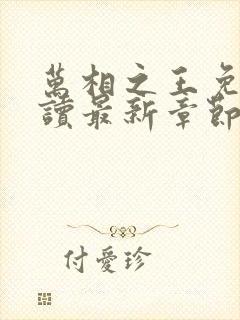 萬相之王免
讀最新章節
付愛珍